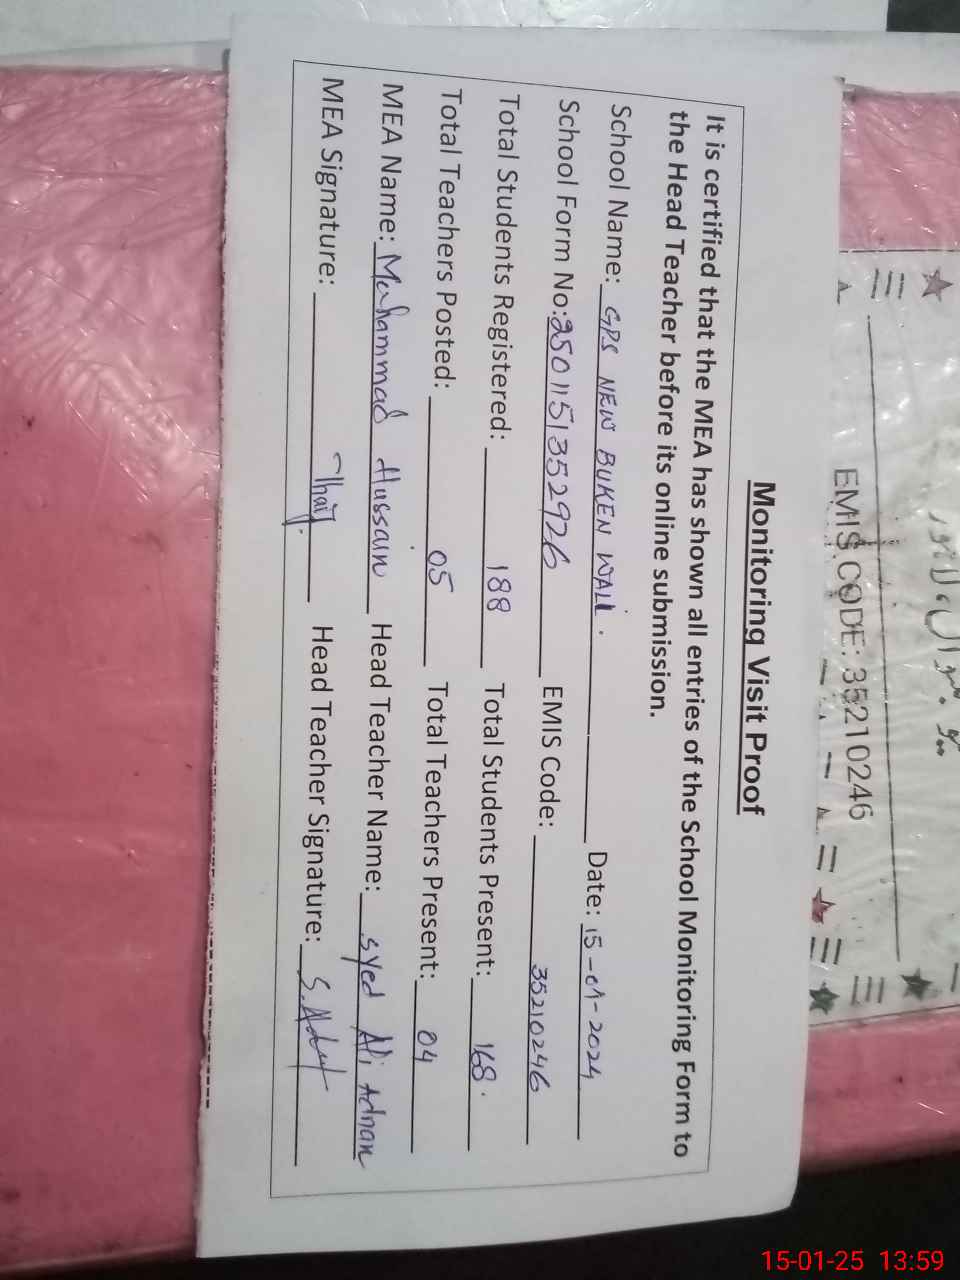 Monitoring Visit Proof
It is certified that the MEA has shown all entries of the School Monitoring Form to
the Head Teacher before its online submission.
School Name: GPS NEW BUKEN WALI. Date: 15-01-2024
School Form No:2501151352926 EMIS Code: 35210246
Total Students Registered: 188 Total Students Present: 168.
Total Teachers Posted: 05 Total Teachers Present: 04
MEA Name: Muhammad Hussain Head Teacher Name: Syed Ali Adnan
MEA Signature: Head Teacher Signature:
EMIS CODE: 35210246
15-01-25 13:59